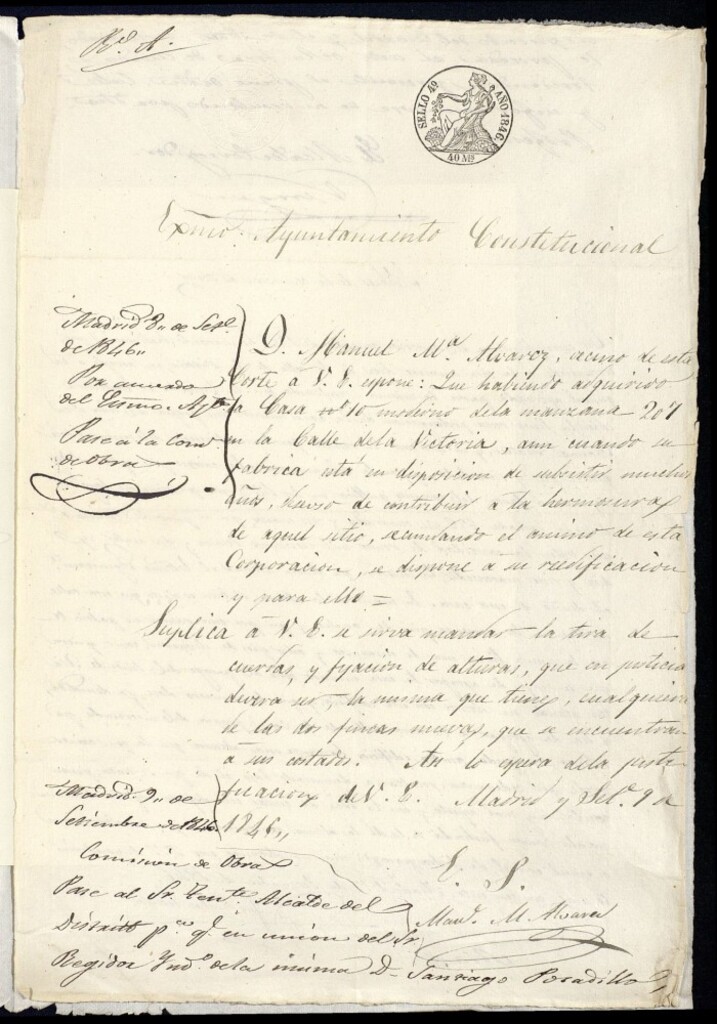 Rdo. A.
SELLO 4º AÑO 1846.
40 Ms
Exmo. Ayuntamiento Constitucional
Madrid 8,, de Sete.
de 1846,,
Por acuerdo
del Exmo. Aytº
Pase á la Comon
de Obras
D. Manuel Ma. Alvarez, vecino de esta
Corte á V. E. espone: Que habiendo adquirido
la Casa no. 10 moderno de la manzana 207
en la Calle de la Victoria, aun cuando su
fabrica está en disposicion de subsistir muchos
años, deseoso de contribuir a la hermosura
de aquel sitio, secundando el animo de esta
Corporacion, se dispone a su reedificacion
y para ello =
Suplica á V. E. se sirva mandar la tira de
cuerdas, y fijacion de alturas, que en justicia
devera ser, la misma que tiene, cualquiera
de las dos fincas nuevas, que se encuentran
a sus costados. Asi lo espera de la justi
ficacion de V. E. Madrid y Sete. 9 de
1846,,
E. S.
Manl. M. Alvarez
Madrid 9,, de
Setiembre de 1846.
Comision de Obras
Pase al Sr. Tente. Alcalde del
Distrito pa. qe. en union del Sr.
Regidor Yndo. de la misma Dn. Santiago Posadillo